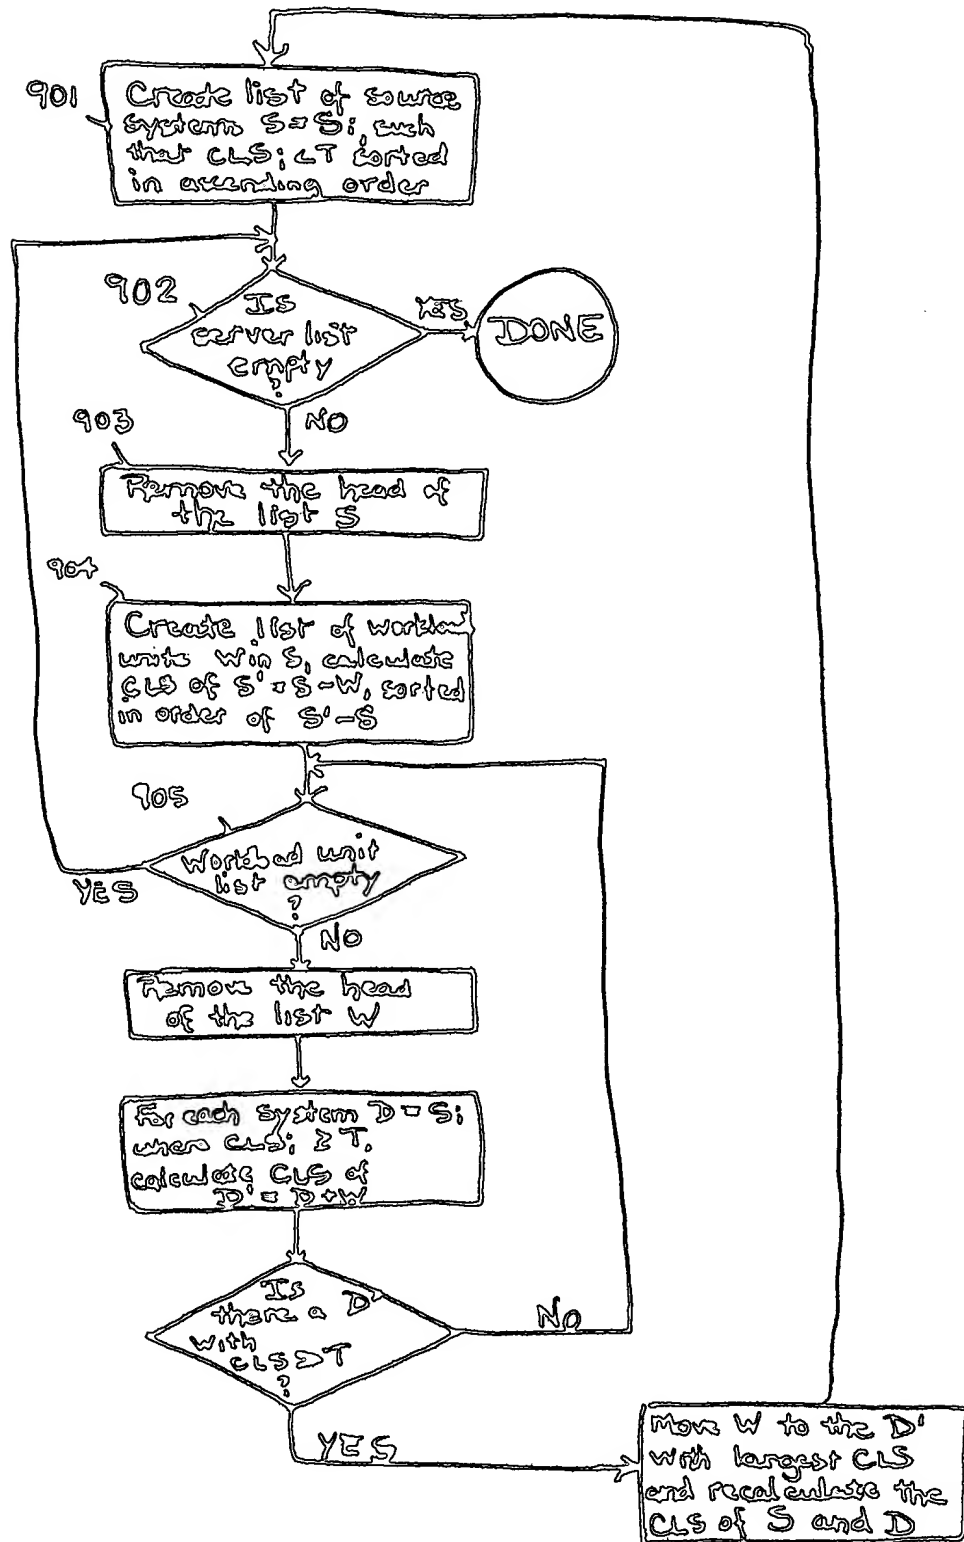 901
Create list of source
systems S = Si, such
that CLSi < T sorted
in ascending order
902
Is
server list
empty
?
YES
DONE
NO
903
Remove the head of
the list S
904
Create list of workload
units W in S, calculate
CLS of S' = S - W, sorted
in order of S' - S
905
Workload unit
list empty
?
YES
NO
Remove the head
of the list W
For each system D = Si
where CLSi ≥ T,
calculate CLS of
D' = D + W
Is
there a D'
with
CLS > T
?
NO
YES
Move W to the D'
with largest CLS
and recalculate the
CLS of S and D